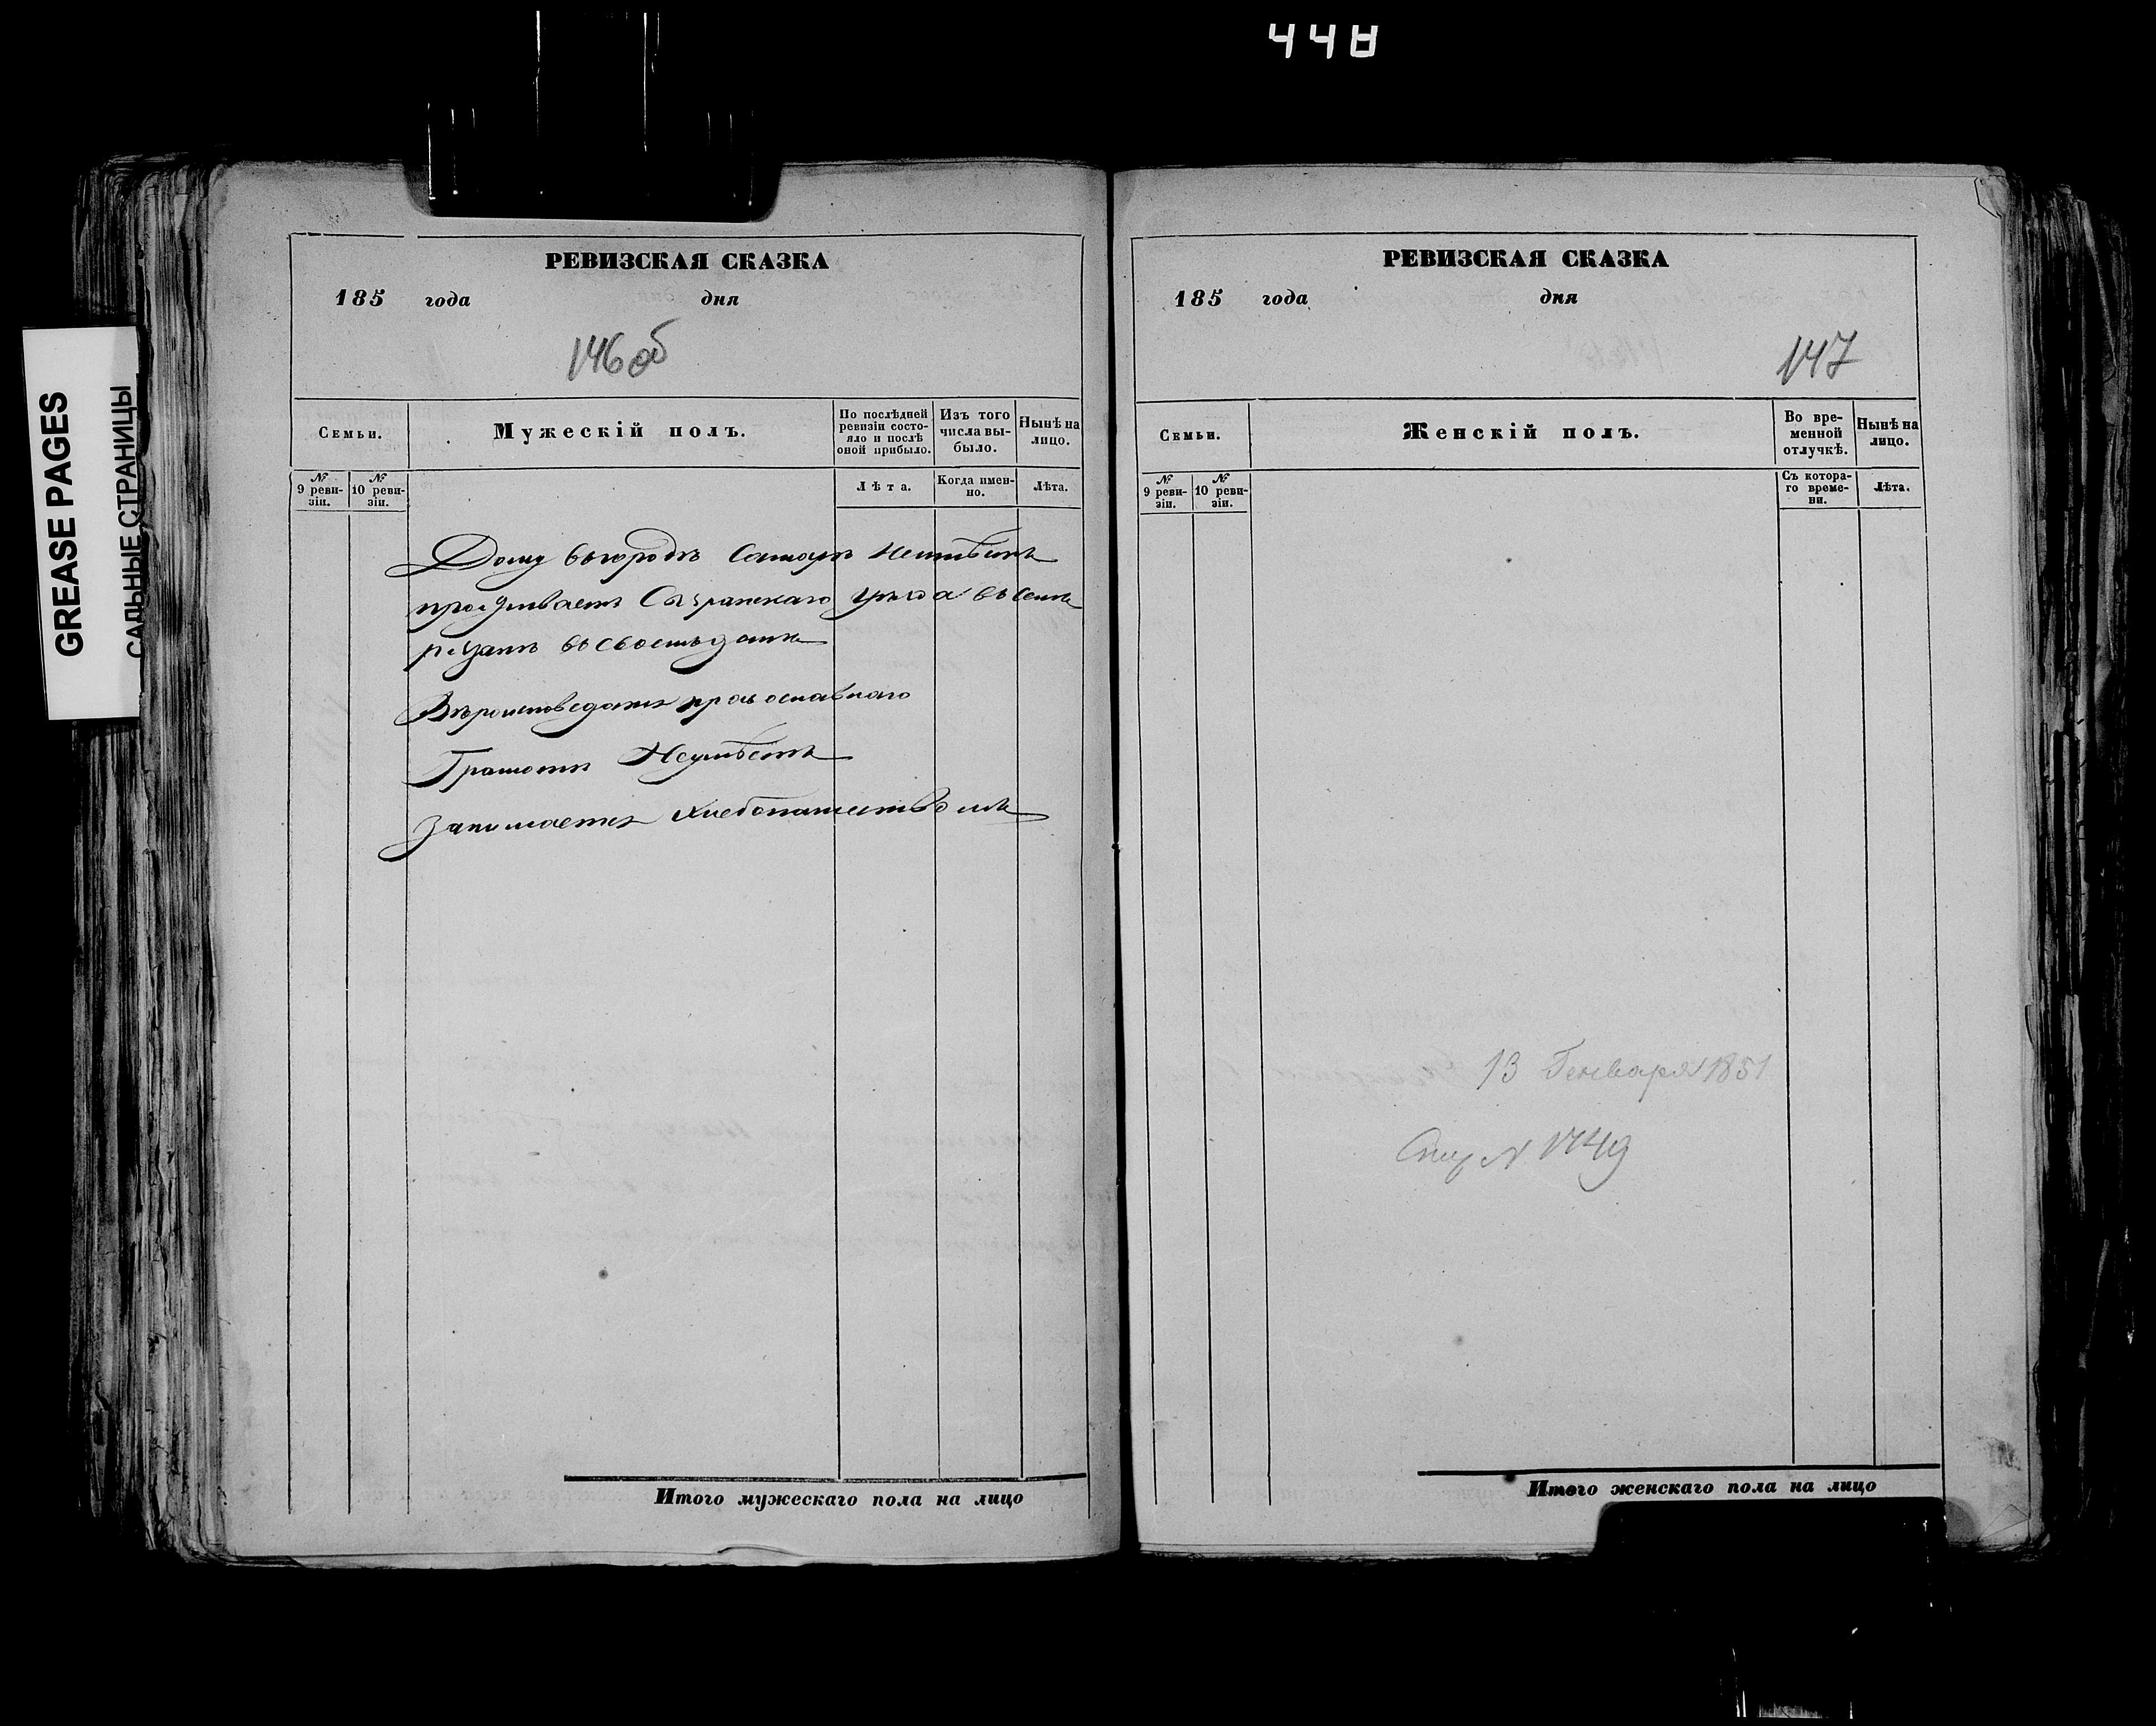 448
GREASE PAGES
САЛЬНЫЕ СТРАНИЦЫ
РЕВИЗСКАЯ СКАЗКА
185 года дня
146 об
Семьи. Мужескій полъ. По послѣдней ревизіи состояло и послѣ оной прибыло. Изъ того числа выбыло. Нынѣ на лицо.
№ 9 ревизіи. № 10 ревизіи. Лѣта. Когда именно. Лѣта.
Дому въ городѣ Самарѣ неимѣетъ
проживаетъ Сызранскаго уѣзда въ селѣ
въ своемъ домѣ
Вѣроисповеданія православнаго
Грамотѣ Неумѣетъ
Занимается хлебопашествомъ
Итого мужескаго пола на лицо
РЕВИЗСКАЯ СКАЗКА
185 года дня
147
Семьи. Женскій полъ. Во временной отлучкѣ. Нынѣ на лицо.
№ 9 ревизіи. № 10 ревизіи. Съ котораго времени. Лѣта.
13 Генваря 1851
№ 1749
Итого женскаго пола на лицо